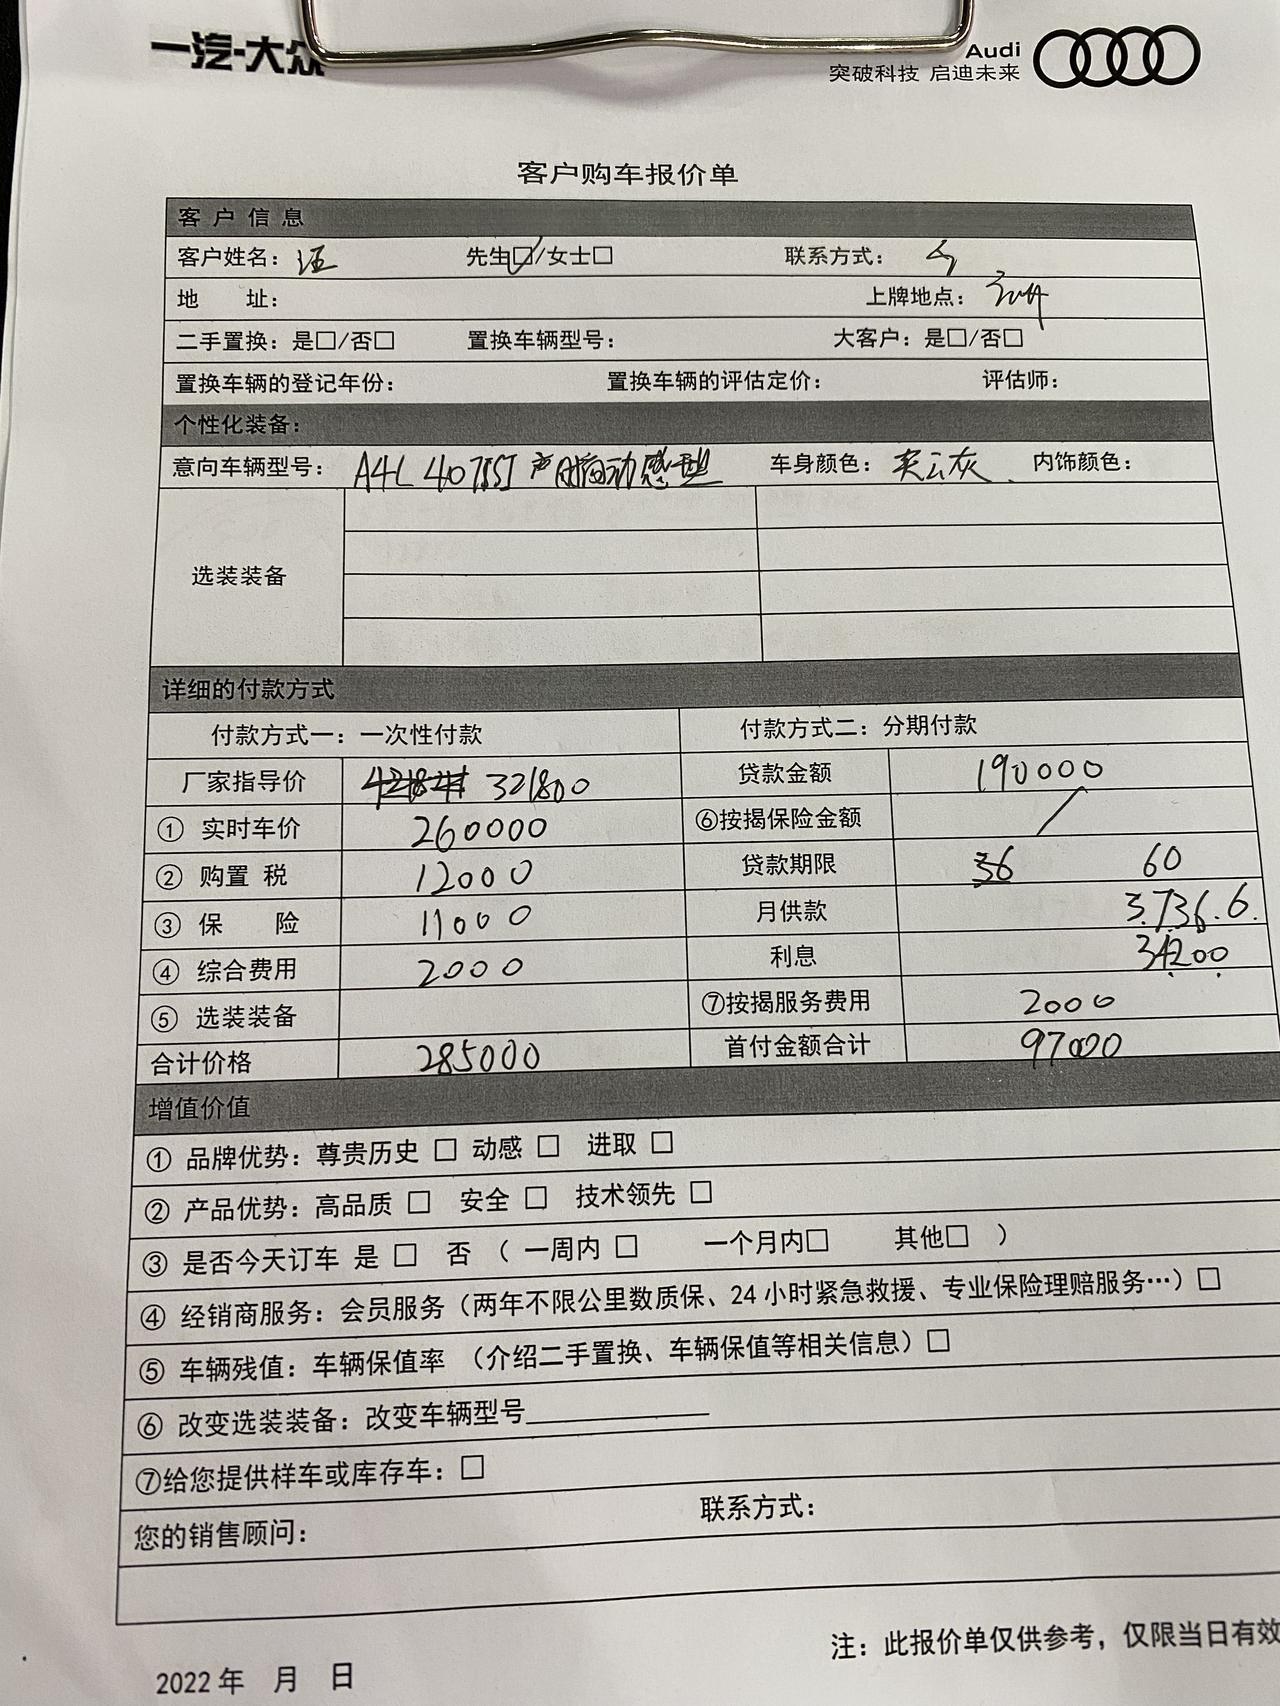 一汽-大众
Audi
突破科技 启迪未来
客户购车报价单
客 户 信 息
客户姓名: 汪 先生☑/女士□ 联系方式:
地 址: 上牌地点:
二手置换: 是□/否□ 置换车辆型号: 大客户: 是□/否□
置换车辆的登记年份: 置换车辆的评估定价: 评估师:
个性化装备:
意向车辆型号: A4L 40TFSI 时尚动感型 车身颜色: 灰 内饰颜色:
选装装备
详细的付款方式
付款方式一: 一次性付款 付款方式二: 分期付款
厂家指导价 321800 贷款金额 190000
① 实时车价 260000 ⑥按揭保险金额 /
② 购置 税 12000 贷款期限 36 60
③ 保 险 11000 月供款 3,736.6.
④ 综合费用 2000 利息 34200
⑤ 选装装备 ⑦按揭服务费用 2000
合计价格 285000 首付金额合计 97000
增值价值
① 品牌优势: 尊贵历史 □ 动感 □ 进取 □
② 产品优势: 高品质 □ 安全 □ 技术领先 □
③ 是否今天订车 是 □ 否 ( 一周内 □ 一个月内□ 其他□ )
④ 经销商服务: 会员服务 (两年不限公里数质保、24小时紧急救援、专业保险理赔服务…) □
⑤ 车辆残值: 车辆保值率 (介绍二手置换、车辆保值等相关信息) □
⑥ 改变选装装备: 改变车辆型号
⑦给您提供样车或库存车: □
您的销售顾问: 联系方式:
注: 此报价单仅供参考, 仅限当日有效
2022 年 月 日